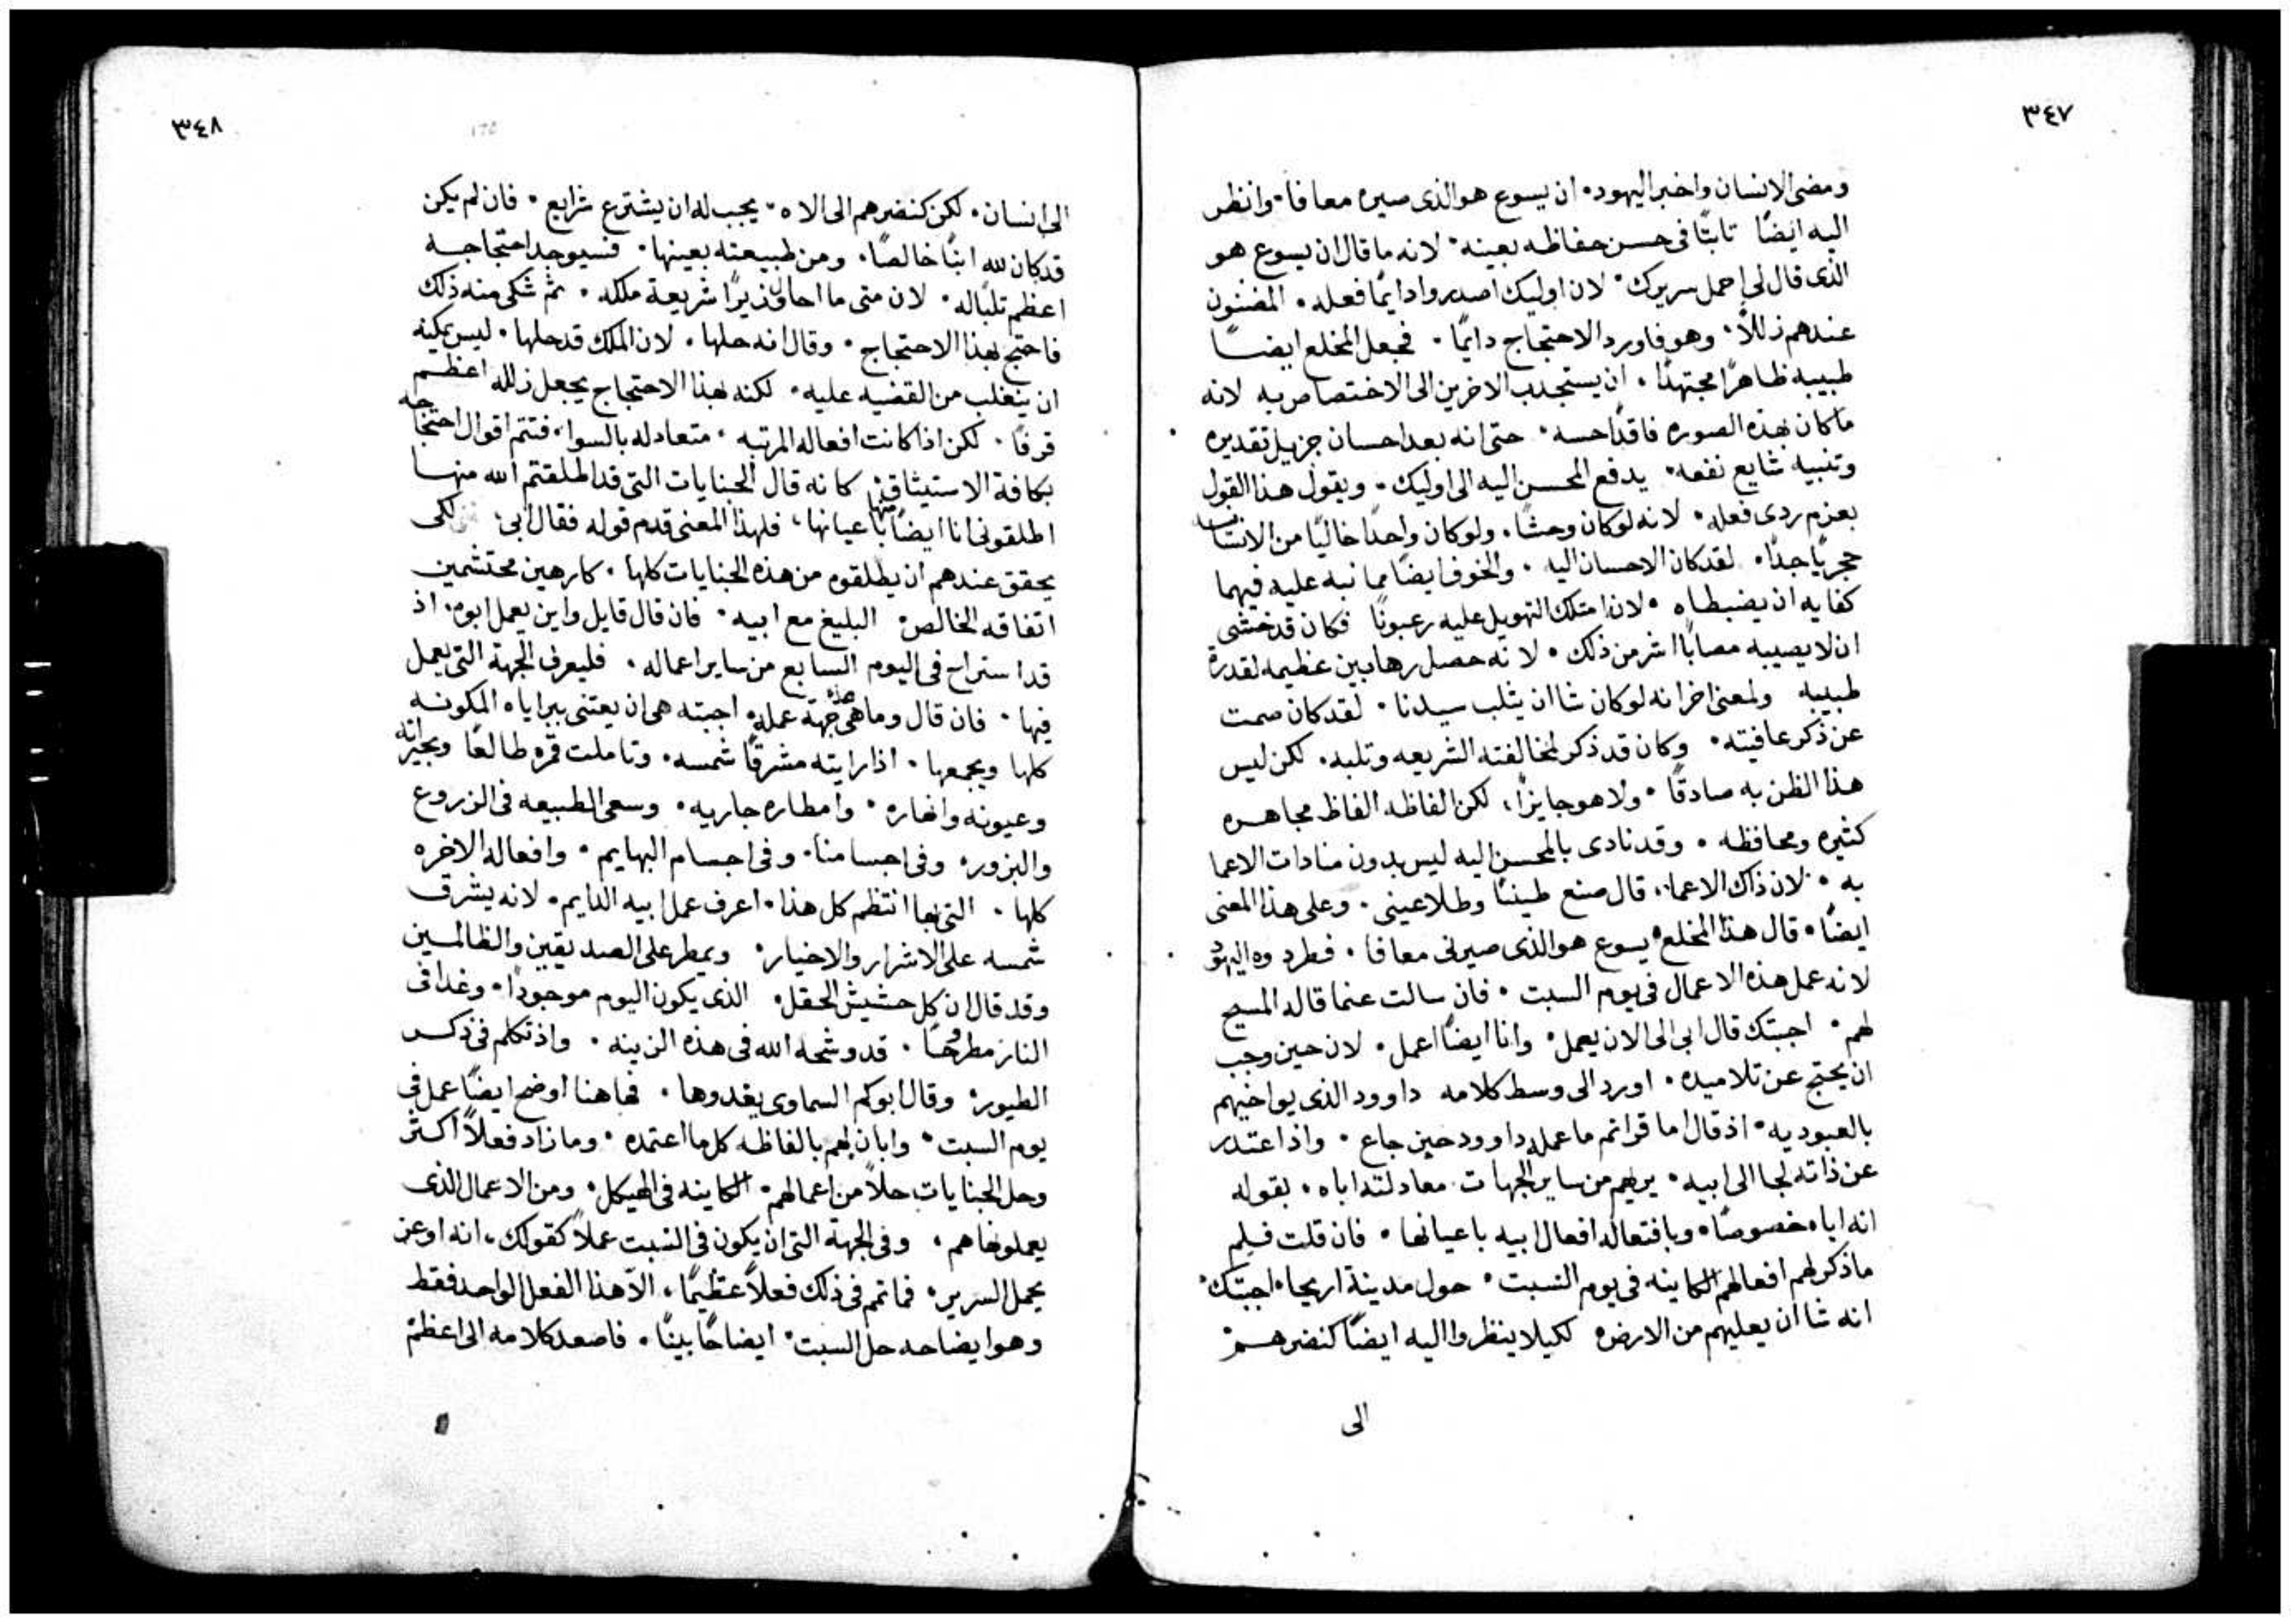 ٣٤٧
ومضى الانسان واخبر اليهود. ان يسوع هو الذى صيره معافا. وانظر
اليه ايضًا تابتًا فى حسن حفاظه بعينه. لانه ما قال ان يسوع هو
الذى قال لى احمل سريرك. لان اوليك اصدروا دايمًا فعله. المضنون
عندهم زللاً. وهو فاورد الاحتجاج دايمًا. فجعل المخلع ايضًا
طبيبه ظاهرًا مجتهدًا. ان يستجدب الاخرين الى الاختصاص به لانه
ما كان بهذه الصوره فاقدًا حسه. حتى انه بعد احسان جزيل تقديره
وتنبيه شايع نفعه. يدفع المحسن اليه الى اوليك. ويقول هذا القول
بعزم ردى فعله. لانه لو كان وحشًا. ولو كان واحدًا خاليًا من الانسانيه
حجريًا جدًا. لقد كان الاحسان اليه. والخوف ايضًا مما نبه عليه فيهما
كفايه ان يضبطاه. لان امتلك التهويل عليه رعبونًا فكان قد خشى
ان لا يصيبه مصابًا اشر من ذلك. لانه حصل رهابين عظيمه لقدرة
طبيبه ولمعنى اخر انه لو كان شا ان يثلب سيدنا. لقد كان صمت
عن ذكر عافيته. وكان قد ذكر لمخالفته الشريعه وتلبه. لكن ليس
هذا الظن به صادقًا. ولا هو جايزًا، لكن الفاظه الفاظ مجاهره
كثيره ومحافظه. وقد نادى بالمحسن اليه ليس بدون منادات الاعما
به. لان ذاك الاعما. قال صنع طينًا وطلا عينى. وعلى هذا المعنى
ايضًا. قال هذا المخلع يسوع هو الذى صيرنى معافا. فطردوه اليهود
لانه عمل هذه الاعمال فى يوم السبت. فان سالت عنما قاله المسيح
لهم. اجبتك قال ابى الى الان يعمل. وانا ايضًا اعمل. لان حين وجب
ان يحتج عن تلاميده. اورد الى وسط كلامه داوود الذى يواخيهم
بالعبوديه. اذ قال اما قراتم ما عمله داوود حين جاع. واذا اعتدر
عن ذاته لجا الى ابيه. يريهم من ساير الجهات معادلته اباه. بقوله
انه اباه خصوصًا. وبافتعاله افعال ابيه باعيانها. فان قلت فلم
ما ذكر لهم افعالهم الكاينه فى يوم السبت. حول مدينة اريحا. اجبتك.
انه شا ان يعليهم من الارض لكيلا ينظروا اليه ايضًا كنضرهم
الى
٣٤٨
الى انسان. لكن كنضرهم الى الاه. يجب له ان يشترع شرايع. فان لم يكن
قد كان لله ابنًا خالصًا. ومن طبيعته بعينها. فسيوجد احتجاجه
اعظم تلبًا له. لان متى ما احال وزيرًا شريعة ملكه. ثم شكى منه ذلك
فاحتج بهذا الاحتجاج. وقال انه حلها. لان الملك قد حلها. ليس يمكنه
ان ينغلب من القضيه عليه. لكنه بهذا الاحتجاج يجعل زلله اعظم
قرفًا. لكن اذا كانت افعاله المرتبه. متعادله بالسوا، فتتم اقوال احتجاجه
بكافة الاستيثاق كانه قال الجنايات التى قد اطلقتم الله منها
اطلقونى انا ايضًا منها باعيانها، فلهذا المعنى قدم قوله فقال ابى. لكى
يحقق عندهم ان يطلقوه من هذه الجنايات كلها. كارهين محتشمين
اتفاقه الخالص. البليغ مع ابيه. فان قال قايل واين يعمل ابوه. اذ
قد استراح فى اليوم السابع من ساير اعماله. فليعرف الجهة التى يعمل
فيها. فان قال وما هى جهة عمله. اجبته هى ان يعتنى ببراياه المكونه
كلها ويجمعها. اذا رايته مشرقًا شمسه. وتاملت قمره طالعًا وبحيراته
وعيونه وانهاره. وامطاره جاريه. وسعى الطبيعه فى الزروع
والبزور. وفى اجسامنا. وفى اجسام البهايم. وافعاله الاخره
كلها. التى بها انتظم كل هذا. اعرف عمل ابيه الدايم. لانه يشرق
شمسه على الاشرار والاخيار. ويمطر على الصديقين والظالمين
وقد قال ان كل حشيش الحقل. الذى يكون اليوم موجودًا. وغدا فى
النار مطروحًا. قد وشحه الله فى هذه الزينه. واذ تكلم فى ذكر
الطيور. وقال ابوكم السماوى يغدوها. فها هنا اوضح ايضًا عمل فى
يوم السبت. وابان لهم بالفاظه كل ما اعتمده. وما زاد فعلاً اكثر
وحل الجنايات حلاً من اعمالهم. الكاينه فى الهيكل. ومن الاعمال الذى
يعملونها هم. وفى الجهة التى ان يكون فى السبت عملاً كقولك، انه اوعز
بحمل السرير. فما تم فى ذلك فعلاً عظيمًا، الا هذا الفعل الواحد فقط
وهو ايضاحه حل السبت. ايضاحًا بينًا. فاصعد كلامه الى اعظم